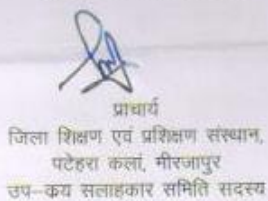 प्राचार्य
जिला शिक्षण एवं प्रशिक्षण संस्थान,
पटेहरा कलां, मीरजापुर
उप-क्रय सलाहकार समिति सदस्य